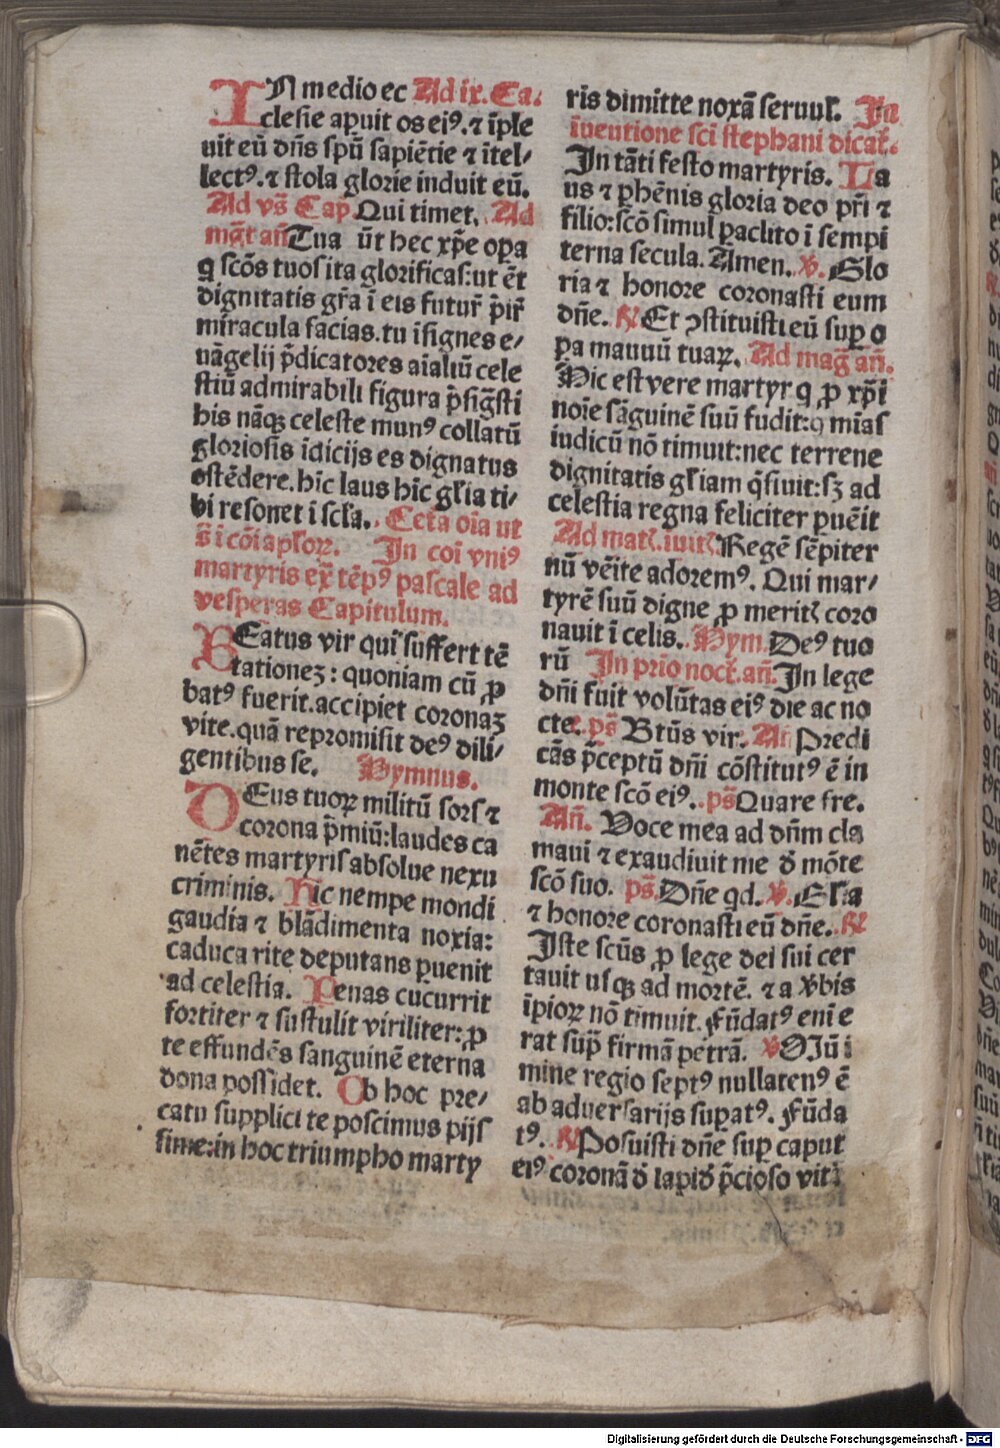 IN medio ec Ad ix. Ca.
clesie aꝑuit os eiꝰ. ⁊ īple
uit eū dn̄s spū sapiētie ⁊ ītel/
lectꝰ. ⁊ stola glorie induit eū.
Ad vs̄ Cap̄ Qui timet. Ad
mag̅t an̄ Tua
q̄ scōs tuos ita glorificas:ut ēt
dignitatis gr̄a ī eis futur̄ p̄ir̄
miracula facias. tu īsignes e/
uāgelij p̄dicatores aīaliū cele
stiū admirabili figura p̄sig̅sti
his nāqꝫ celeste munꝰ collatū
gloriosis īdicijs es dignatus
ostēdere. hīc laus hīc gl̄ia ti/
bi resonet ī scl̄a. Cet̄a oīa ut
s̄ ī cōī apl̄oꝝ. In coī vniꝰ
martyris ex̄ tēpꝰ pascale ad
vesperas Capitulum.
BEatus vir qui suffert tē
tationeꝫ: quoniam cū ꝓ
batꝰ fuerit. accipiet coronaꝫ
vite. quā repromisit deꝰ dili/
gentibus se. Hymnus.
DEus tuoꝝ militū sors ⁊
corona p̄miū:laudes ca
nētes martyris absolue nexu
criminis. Hic nempe mondi
gaudia ⁊ blādimenta noxia:
caduca rite deputans ꝑuenit
ad celestia. Penas cucurrit
fortiter ⁊ sustulit viriliter: ꝓ
te effundēs sanguinē eterna
dona possidet. Ob hoc pre/
catu supplici te poscimus pijs
sime:in hoc triumpho marty
ris dimitte noxā seruul̄. In
īuentione sci stephani dicat̄.
In tāti festo martyris. La
us ⁊ ꝑhēnis gloria deo pr̄i ⁊
filio:scō simul ꝑaclito ī sempi
terna secula. Amen. ℣. Glo
ria ⁊ honore coronasti eum
dn̄e. ℟ Et ꝯstituisti eū suꝑ o
ꝑa manuū tuaꝝ. Ad mag̅ an̄.
Hic est vere martyr q̄ ꝓ xp̄i
noīe sāguinē suū fudit: q̄ mīas
iudicū nō timuit:nec terrene
dignitatis gl̄iam q̄siuit: sꝫ ad
celestia regna feliciter ꝑuēit
Ad mat̄. īuit̄. Regē sēpiter
nū vēite adoremꝰ. Qui mar/
tyrē suū digne ꝓ merit̄ coro
nauit ī celis. Hym. Deꝰ tuo
rū In prīo noct̄. an̄. In lege
dn̄i fuit volūtas eiꝰ die ac no
cte. ps̄ Btūs vir. An̄ Predi
cās p̄ceptū dn̄i cōstitutꝰ ē in
monte scō eiꝰ. ps̄ Quare fre.
An̄. Voce mea ad dn̄m cla
maui ⁊ exaudiuit me ð mōte
scō suo. ps̄. Dn̄e qd. ℣. Gl̄ia
⁊ honore coronasti eū dn̄e. ℟
Iste scūs ꝓ lege dei sui cer
tauit usqꝫ ad mortē. ⁊ a v̄bis
īpioꝝ nō timuit. fūdatꝰ enī e
rat sup̄ firmā petrā. ℣ OIū ī
mine regio septꝰ nullatenꝰ ē
ab aduersarijs suꝑatꝰ. Fūda
tꝰ. ℟ Posuisti dn̄e suꝑ caput
eiꝰ coronā ð lapid̄ p̄cioso vit̄